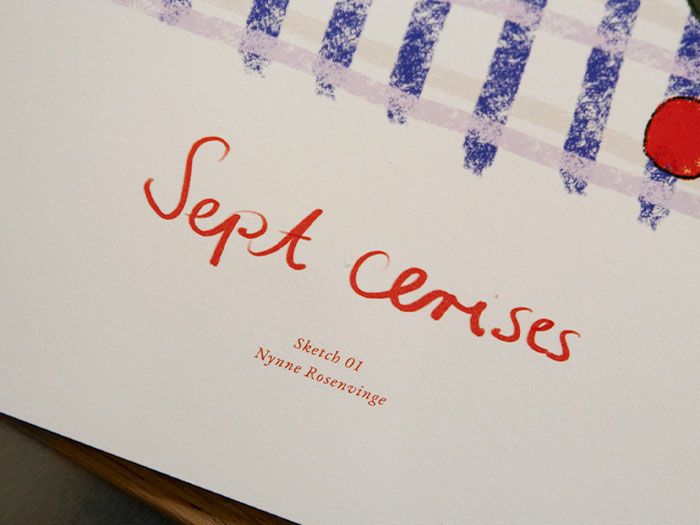 Sept cerises
Sketch 01
Nynne Rosenvinge